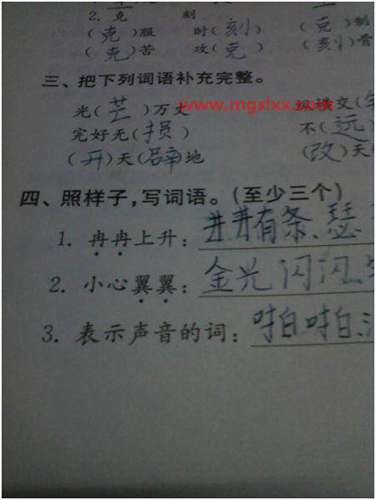 2. 克 刻
(克)服 时(刻) (克)制
(克)苦 攻(克) (刻)骨
三、把下列词语补充完整。
光(芒)万丈 纵横交(
www.mgslxx.com
完好无(损) 不(远)
(开)天(辟)地 (改)天
四、照样子,写词语。(至少三个)
1. 冉冉上升: 井井有条、瑟
2. 小心翼翼: 金光闪闪、
3. 表示声音的词: 啪啪、